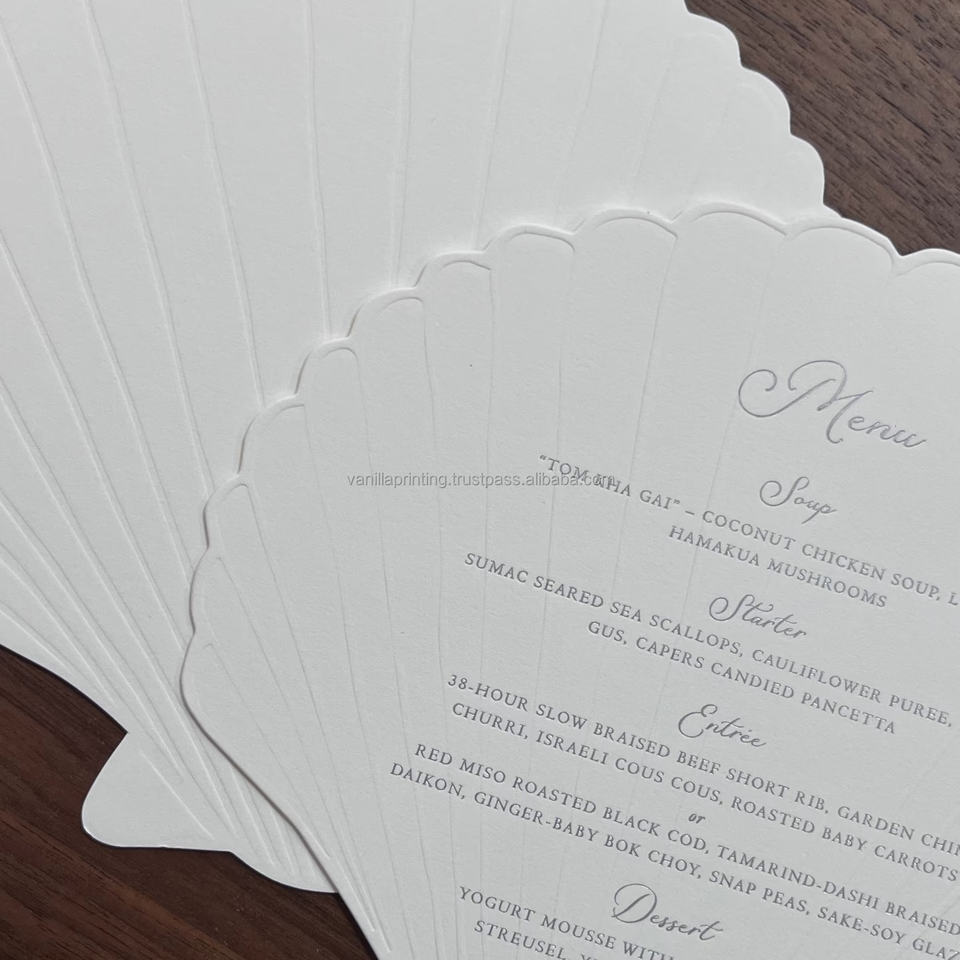 Menu
Soup
"TOM KHA GAI" – COCONUT CHICKEN SOUP, L
HAMAKUA MUSHROOMS
Starter
SUMAC SEARED SEA SCALLOPS, CAULIFLOWER PUREE,
GUS, CAPERS CANDIED PANCETTA
Entrée
38-HOUR SLOW BRAISED BEEF SHORT RIB, GARDEN CHI
CHURRI, ISRAELI COUS COUS, ROASTED BABY CARROTS
or
RED MISO ROASTED BLACK COD, TAMARIND-DASHI BRAISED
DAIKON, GINGER-BABY BOK CHOY, SNAP PEAS, SAKE-SOY GLAZ
Dessert
YOGURT MOUSSE WITH
STREUSEL,
vanillaprinting.trustpass.alibaba.com